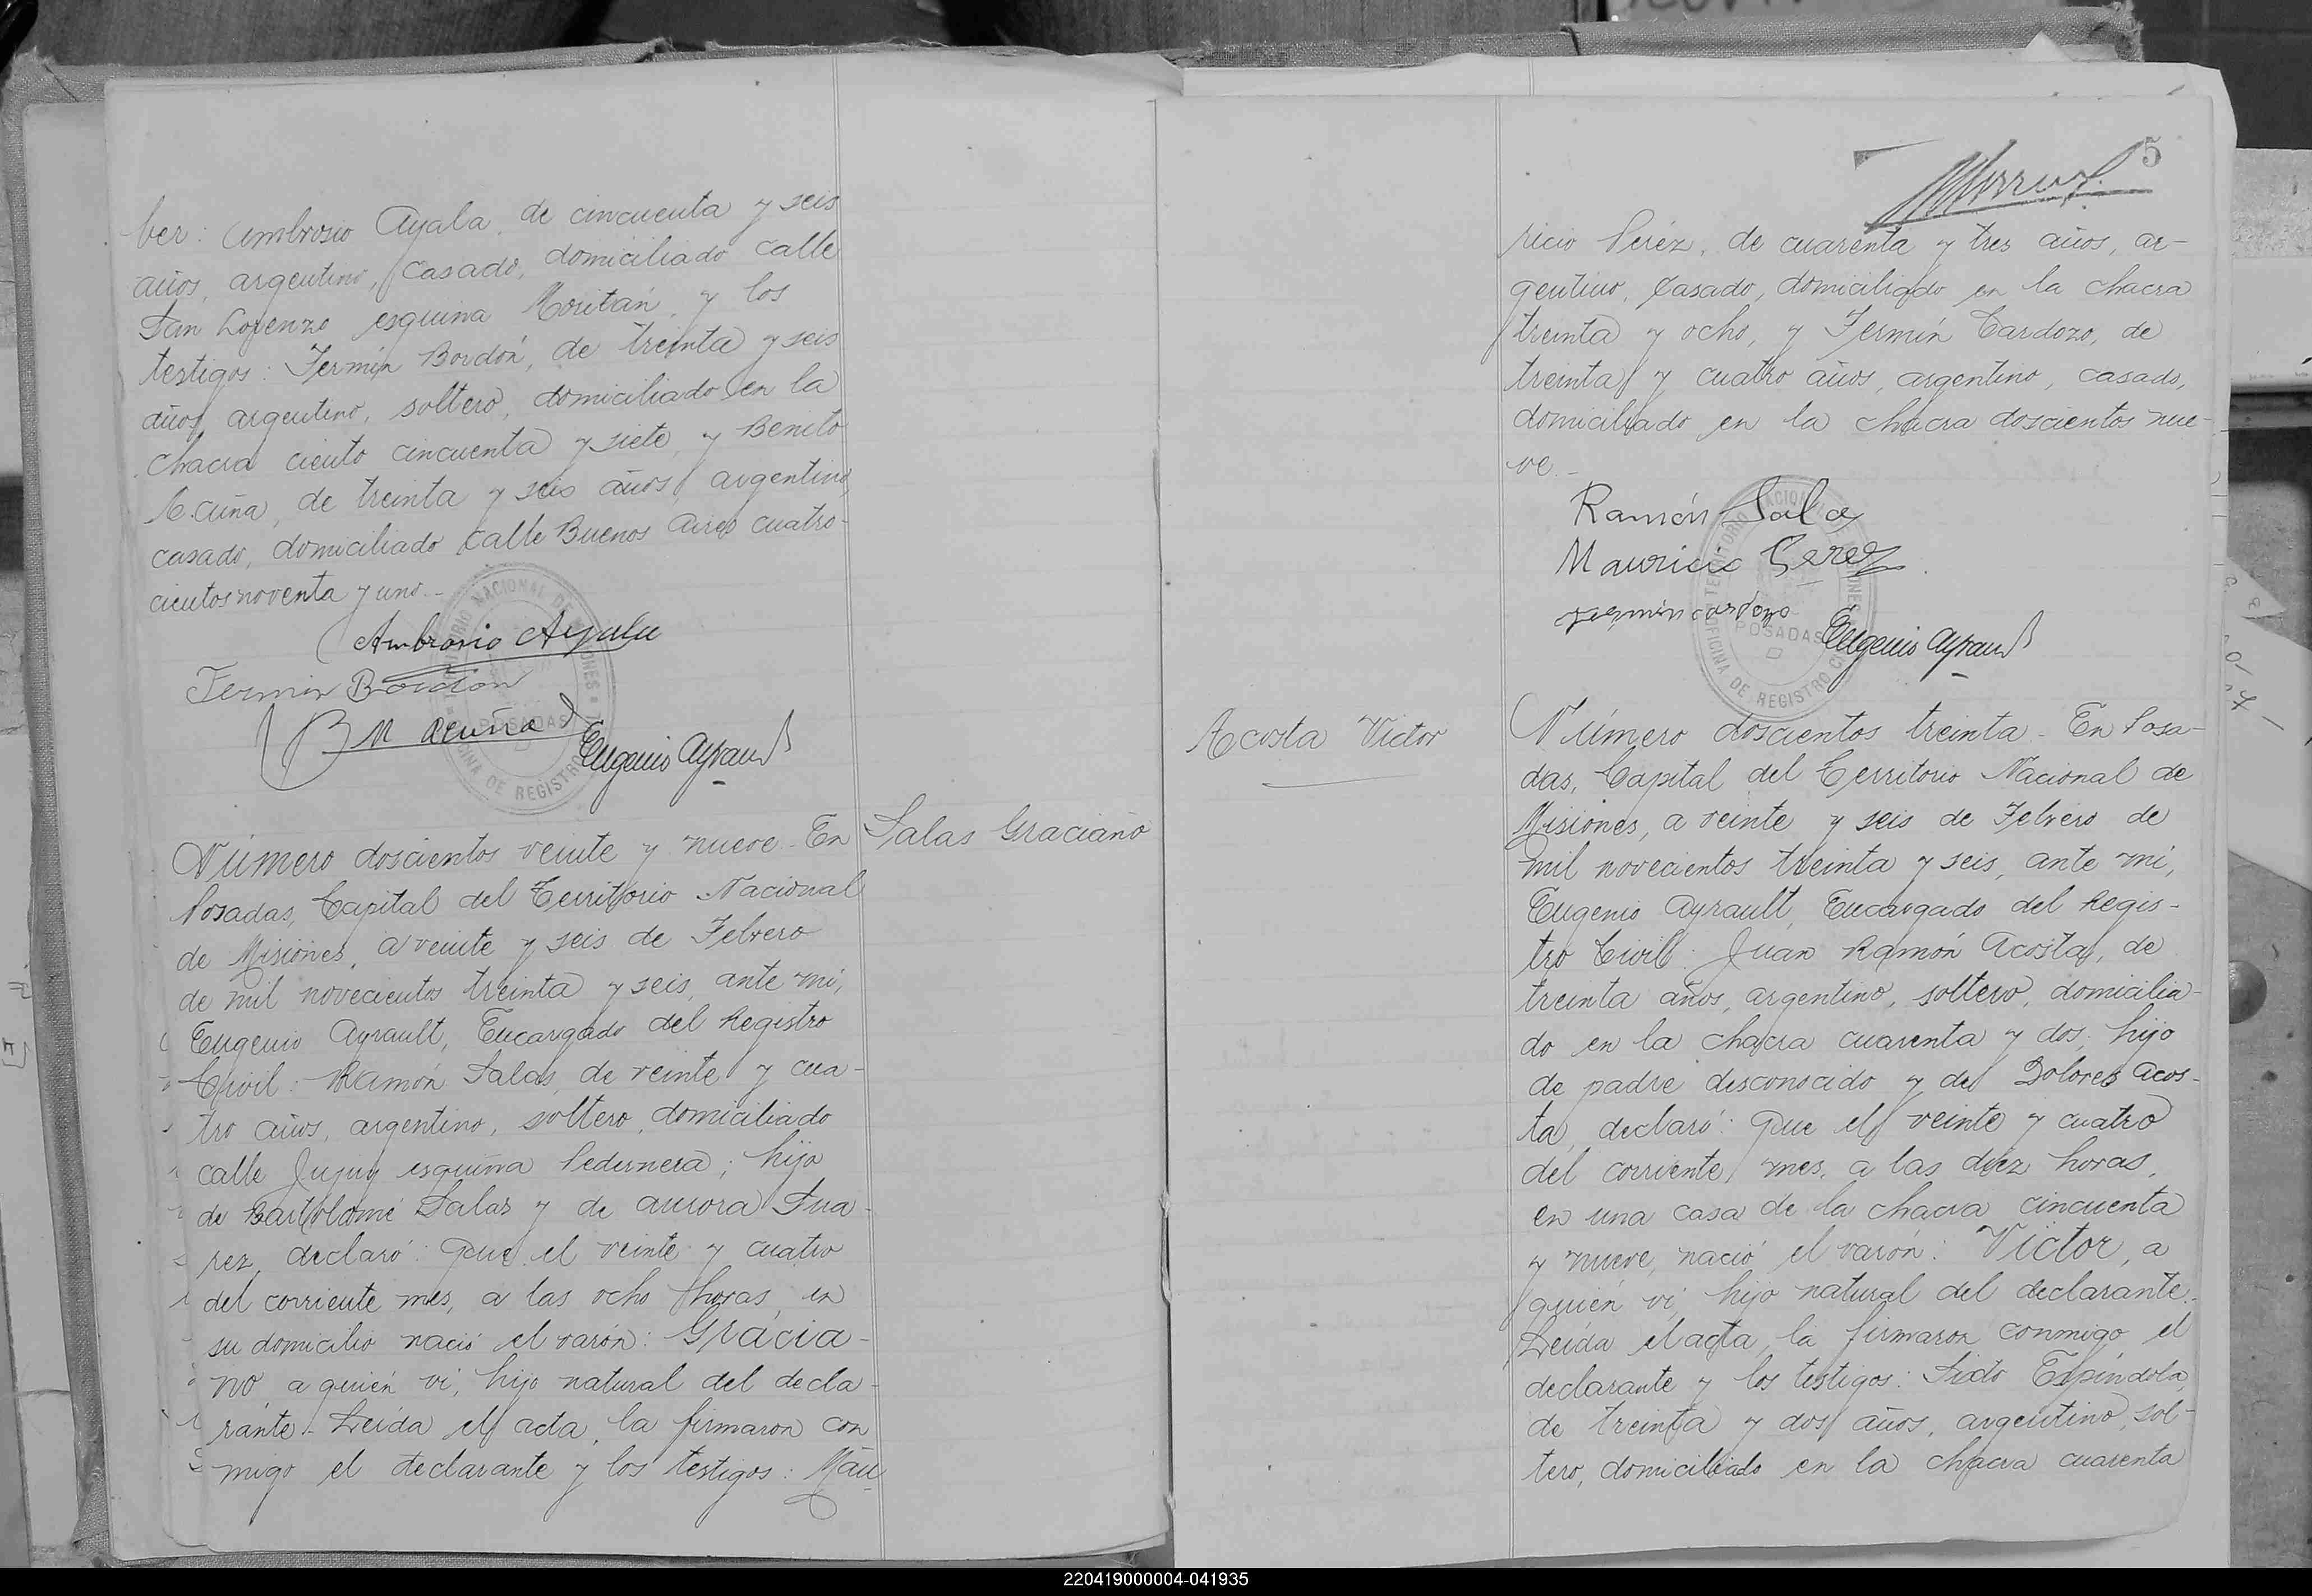 ber: Ambrosio Ayala, de cincuenta y seis
años, argentino, casado, domiciliado calle
San Lorenzo esquina Moritán, y los
testigos: Fermín Bordón, de treinta y seis
años, argentino, soltero, domiciliado en la
chacra ciento cincuenta y siete, y Benito
Acuña, de treinta y seis años, argentino,
casado, domiciliado calle Buenos Aires cuatro-
cientos noventa y uno.-
Ambrosio Ayala
Fermin Bordón
B M Acuña
Eugenio Ayrault
TERRITORIO NACIONAL DE MISIONES
POSADAS
OFICINA DE REGISTRO
Número doscientos veinte y nueve.- En
Salas Graciano
Posadas, Capital del Territorio Nacional
de Misiones, a veinte y seis de Febrero
de mil novecientos treinta y seis, ante mí,
Eugenio Ayrault, Encargado del Registro
Civil: Ramón Salas, de veinte y cua-
tro años, argentino, soltero, domiciliado
calle Jujuy esquina Pedernera; hijo
de Bartolomé Salas y de Aurora Sua-
rez, declaró: Que el veinte y cuatro
del corriente mes, a las ocho horas, en
su domicilio nació el varón: Gracia-
no, a quién ví, hijo natural del decla-
rante.- Leída el acta, la firmaron con
migo el declarante y los testigos: Mau-
5
ricio Peréz, de cuarenta y tres años, ar-
gentino, casado, domiciliado en la chacra
treinta y ocho, y Fermín Cardozo, de
treinta y cuatro años, argentino, casado,
domiciliado en la chacra doscientos nue-
ve.-
Ramón Salas
Mauricio Perez
Fermin Cardozo
Eugenio Ayrault
TERRITORIO NACIONAL DE MISIONES
POSADAS
OFICINA DE REGISTRO CIVIL
Acosta Victor
Número doscientos treinta.- En Posa-
das, Capital del Territorio Nacional de
Misiones, a veinte y seis de Febrero de
mil novecientos treinta y seis, ante mí,
Eugenio Ayrault, Encargado del Regis-
tro Civil: Juan Ramón Acosta, de
treinta años, argentino, soltero, domicilia-
do en la chacra cuarenta y dos; hijo
de padre desconocido y de Dolores Acos-
ta, declaró: Que el veinte y cuatro
del corriente mes, a las diez horas,
en una casa de la chacra cincuenta
y nueve, nació el varón: Victor, a
quién ví, hijo natural del declarante.-
Leída el acta, la firmaron conmigo el
declarante y los testigos: Sixto Espíndola,
de treinta y dos años, argentino, sol-
tero, domiciliado en la chacra cuarenta
220419000004-041935